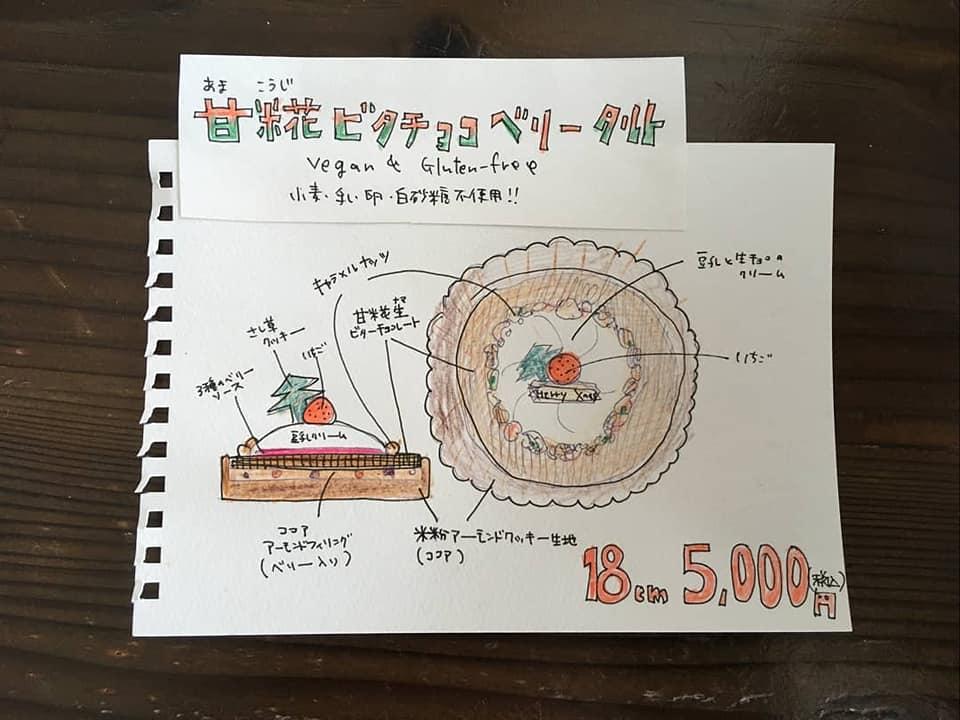 あま こうじ
甘糀ビタチョコベリータルト
Vegan & Gluten-free
小麦・乳・卵・白砂糖不使用!!
キャラメルナッツ
豆乳と生チョコ
クリーム
甘糀生
ナマ
ビターチョコレート
クッキー
いちご
いちご
3種のベリー
ソース
Merry Xmas
豆乳クリーム
ココア
アーモンドフィリング
(ベリー入り)
米粉アーモンドクッキー生地
(ココア)
18cm 5,000円
(税込)